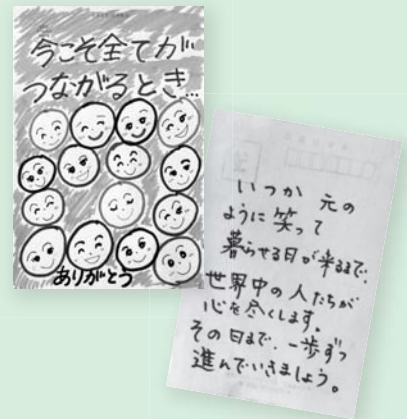 今こそ全てが
つながるとき…
ありがとう
いつか 元の
ように 笑って
暮らせる日が来るまで、
世界中の人たちが
心を尽くします。
その日まで、一歩ずつ
進んでいきましょう。